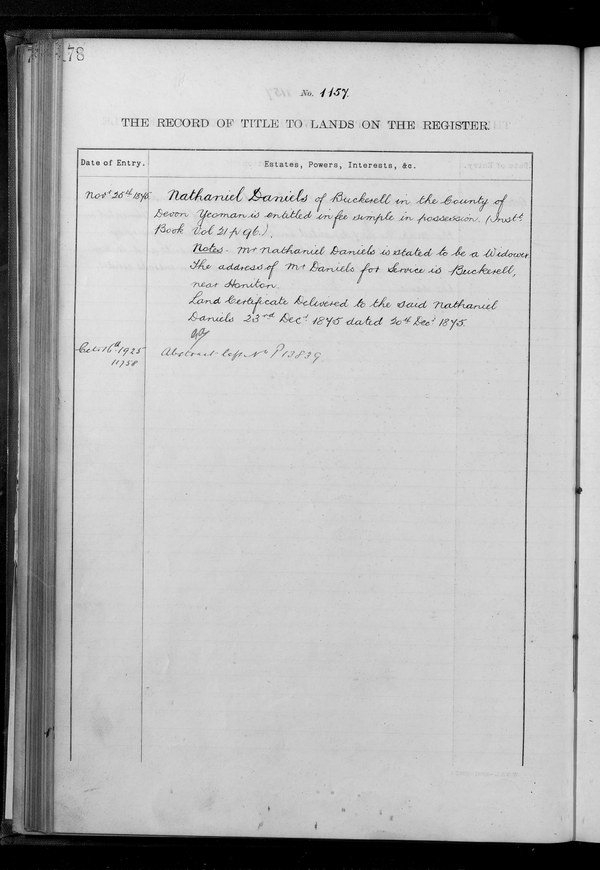 178
No. 1157.
THE RECORD OF TITLE TO LANDS ON THE REGISTER.
Date of Entry.
Estates, Powers, Interests, &c.
Novr 25th 1875
Nathaniel Daniels of Buckerell in the County of
Devon Yeoman is entitled in fee simple in possession. (Instt
Book Vol 21 p 96).
Notes. Mr Nathaniel Daniels is stated to be a Widower
The address of Mr Daniels for Service is Buckerell,
near Honiton.
Land Certificate Delivered to the said Nathaniel
Daniels 23rd Decr 1875 dated 20th Decr 1875.
Octr 16th 1925
11758
Abstract No P 13839